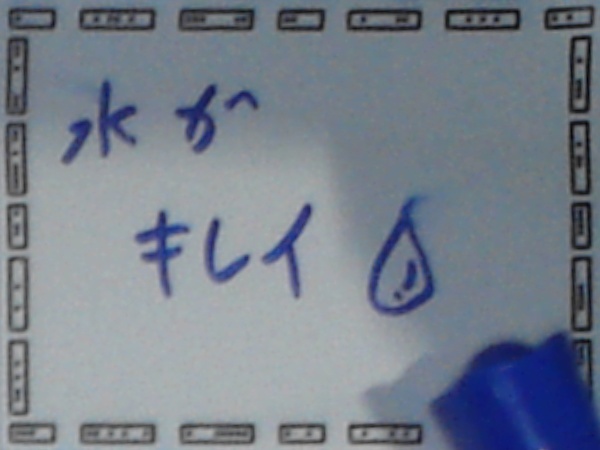 水が
キレイ